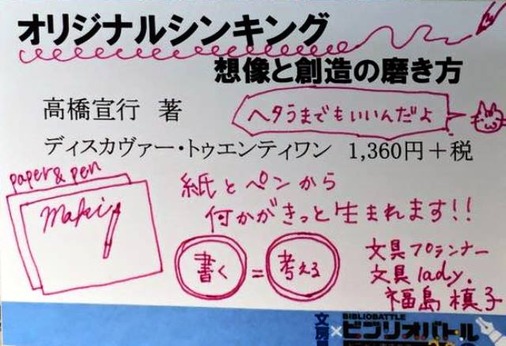 オリジナルシンキング
想像と創造の磨き方
高橋宣行 著
ヘタうまでもいいんだよ
ディスカヴァー・トゥエンティワン 1,360円+税
paper & pen
making
紙とペンから
何かがきっと生まれます!!
書く = 考える
文具プランナー
文具lady.
福島槙子
BIBLIOBATTLE
文房
×ビブリオバトル